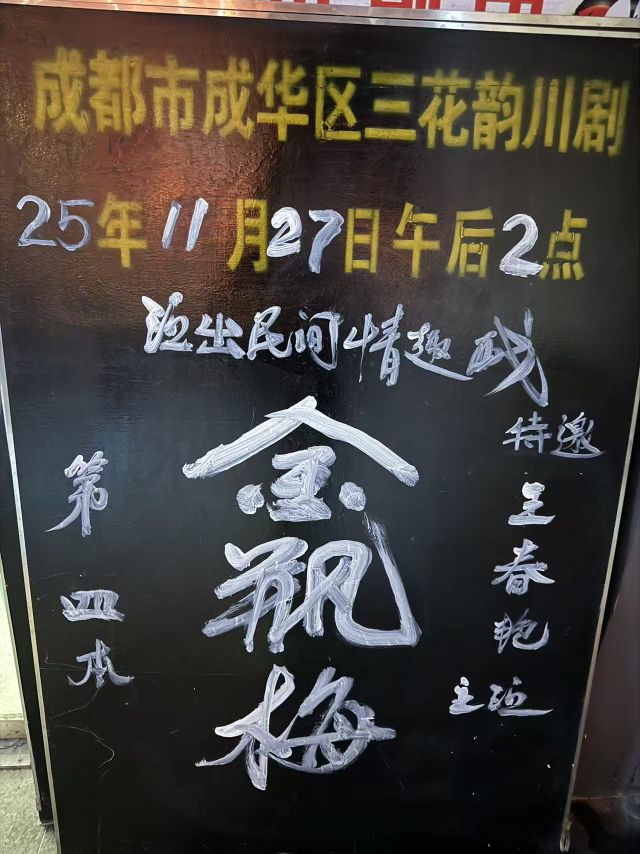 成都市成华区三花韵川剧
25年11月27日午后2点
演出民间情趣戏
特邀
春
主演
金瓶梅
第四本